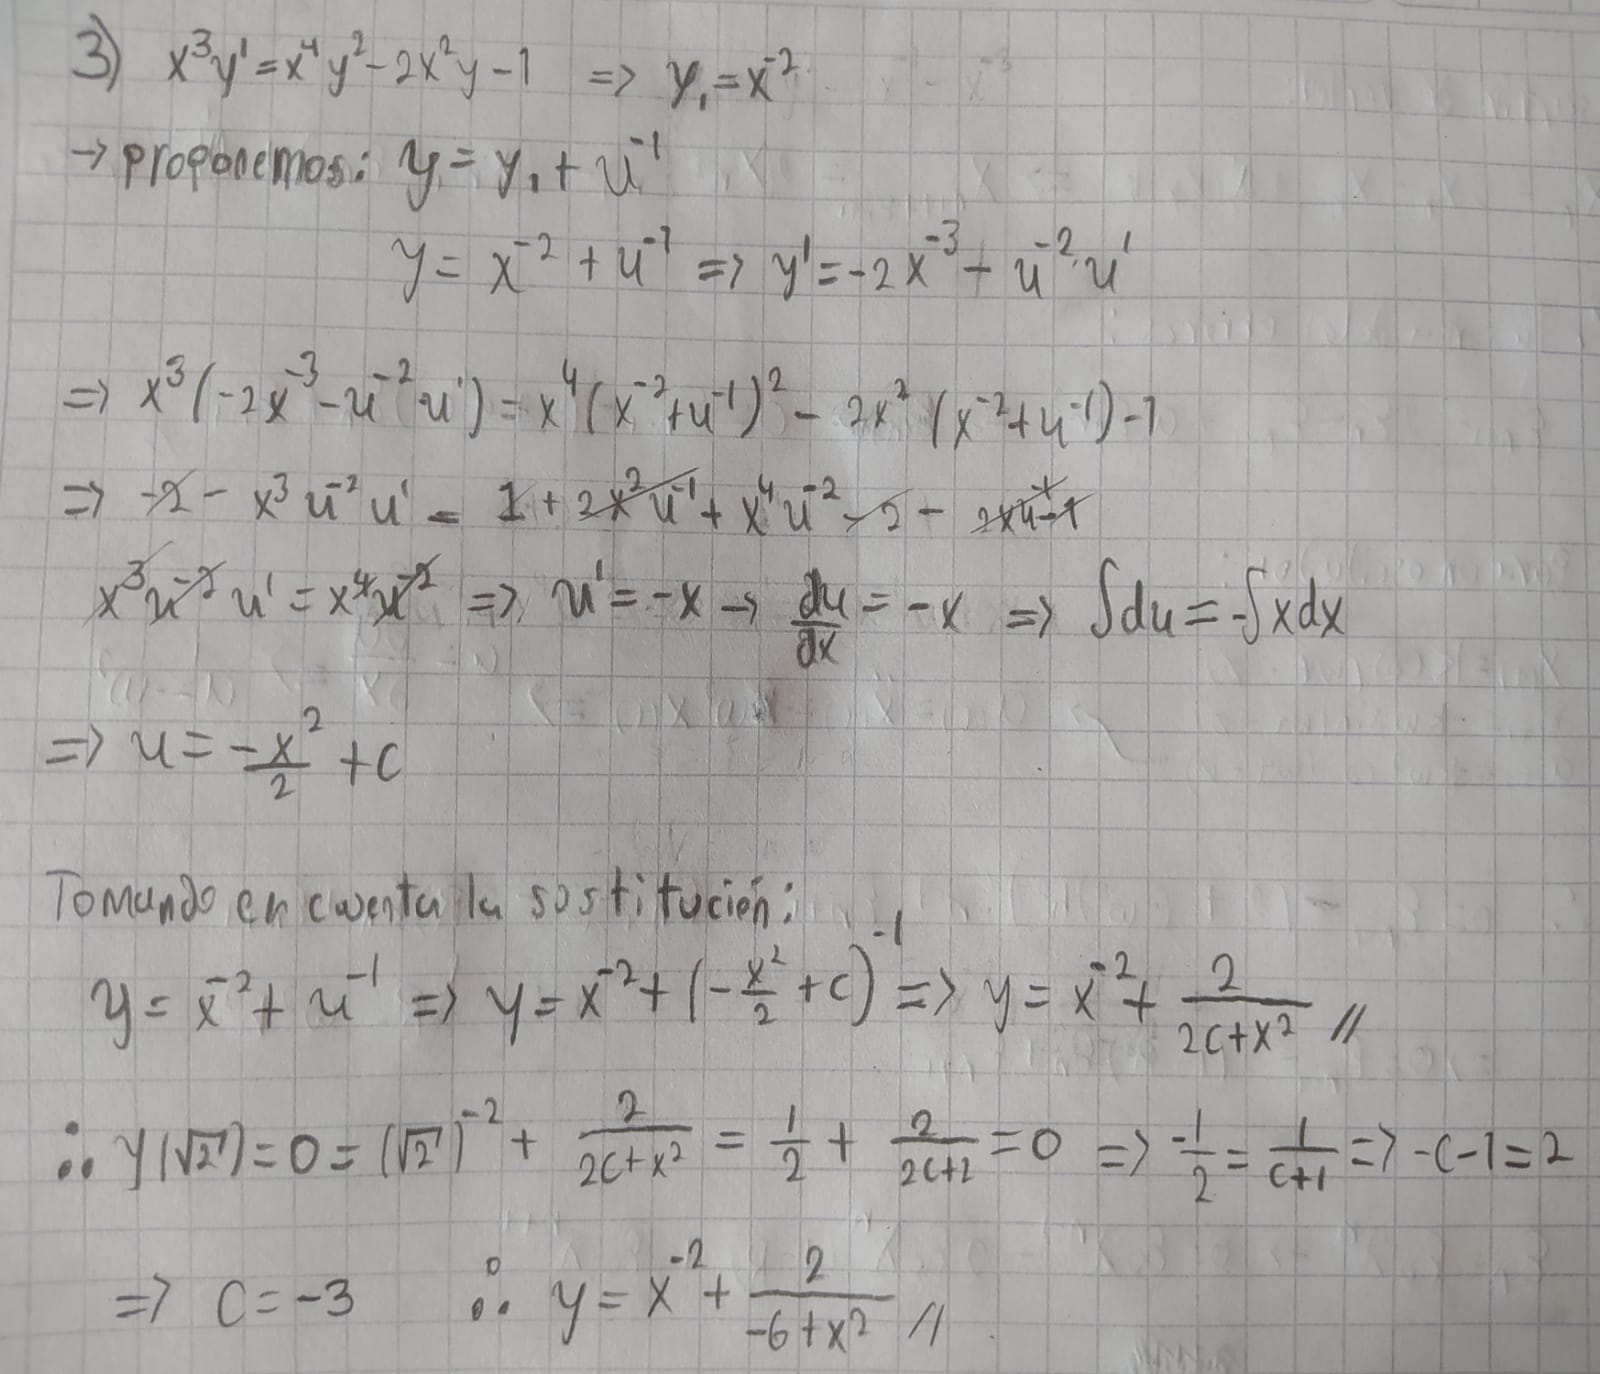 3) x³y' = x⁴y² - 2x²y - 1 => y₁ = x⁻²
→ proponemos: y = y₁ + u⁻¹
y = x⁻² + u⁻¹ => y' = -2x⁻³ - u⁻²·u'
=> x³(-2x⁻³ - u⁻²u') = x⁴(x⁻² + u⁻¹)² - 2x²(x⁻² + u⁻¹) - 1
=> -2 - x³u⁻²u' = 1 + 2x²u⁻¹ + x⁴u⁻² - 2 - 2xu⁻¹ - 1
x³u⁻²u' = x⁴u⁻² => u' = -x → du/dx = -x => ∫du = -∫xdx
=> u = -x²/2 + c
Tomando en cuenta la sostitución:
y = x⁻² + u⁻¹ => y = x⁻² + (-x²/2 + c)⁻¹ => y = x⁻² + 2/(2c+x²) //
∴ y(√2) = 0 = (√2)⁻² + 2/(2c+x²) = 1/2 + 2/(2c+2) = 0 => -1/2 = 1/(c+1) => -c-1 = 2
=> C = -3 ∴ y = x⁻² + 2/(-6+x²) //